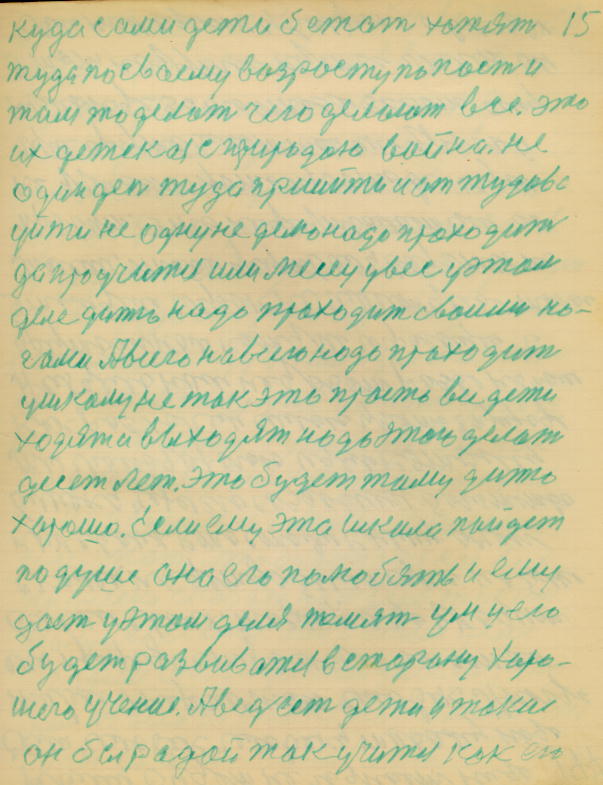 куда сами дети бежат хотят 15
туда по своему возросту попост и
там то делат чего делают все. это
их детская с природою война. не
один ден туда прийти и от тудова
уйти не одну не делю надо проходит
да проучится или месец увес у этом
деле дитю надо проходит своими но-
гами А всего на всего надо проходит
у школу не так это просто все дети
ходят и выходят надо этого делат
десет лет. это будет тому дитю
харошо. Если ему эта школа пойдет
по душе она его полюбять и ему
даст у этом деля помят ум у его
будет развиватся в сторону харо-
шего учение. А ведь ест дети и такие
он бы радой так учится как его